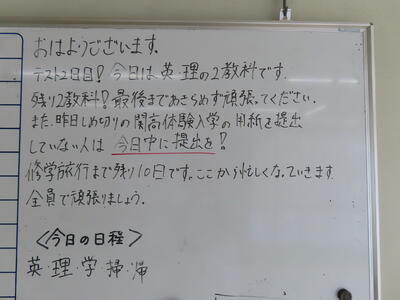 おはようございます。
テスト2日目！今日は英・理の2教科です。
残り2教科！最後まであきらめず頑張ってください。
また、昨日しめ切りの関高体験入学の用紙を提出
していない人は 今日中に提出を！
修学旅行まで残り10日です。ここから忙しくなっていきます
全員で頑張りましょう。
＜今日の日程＞
英・理・学 掃・帰